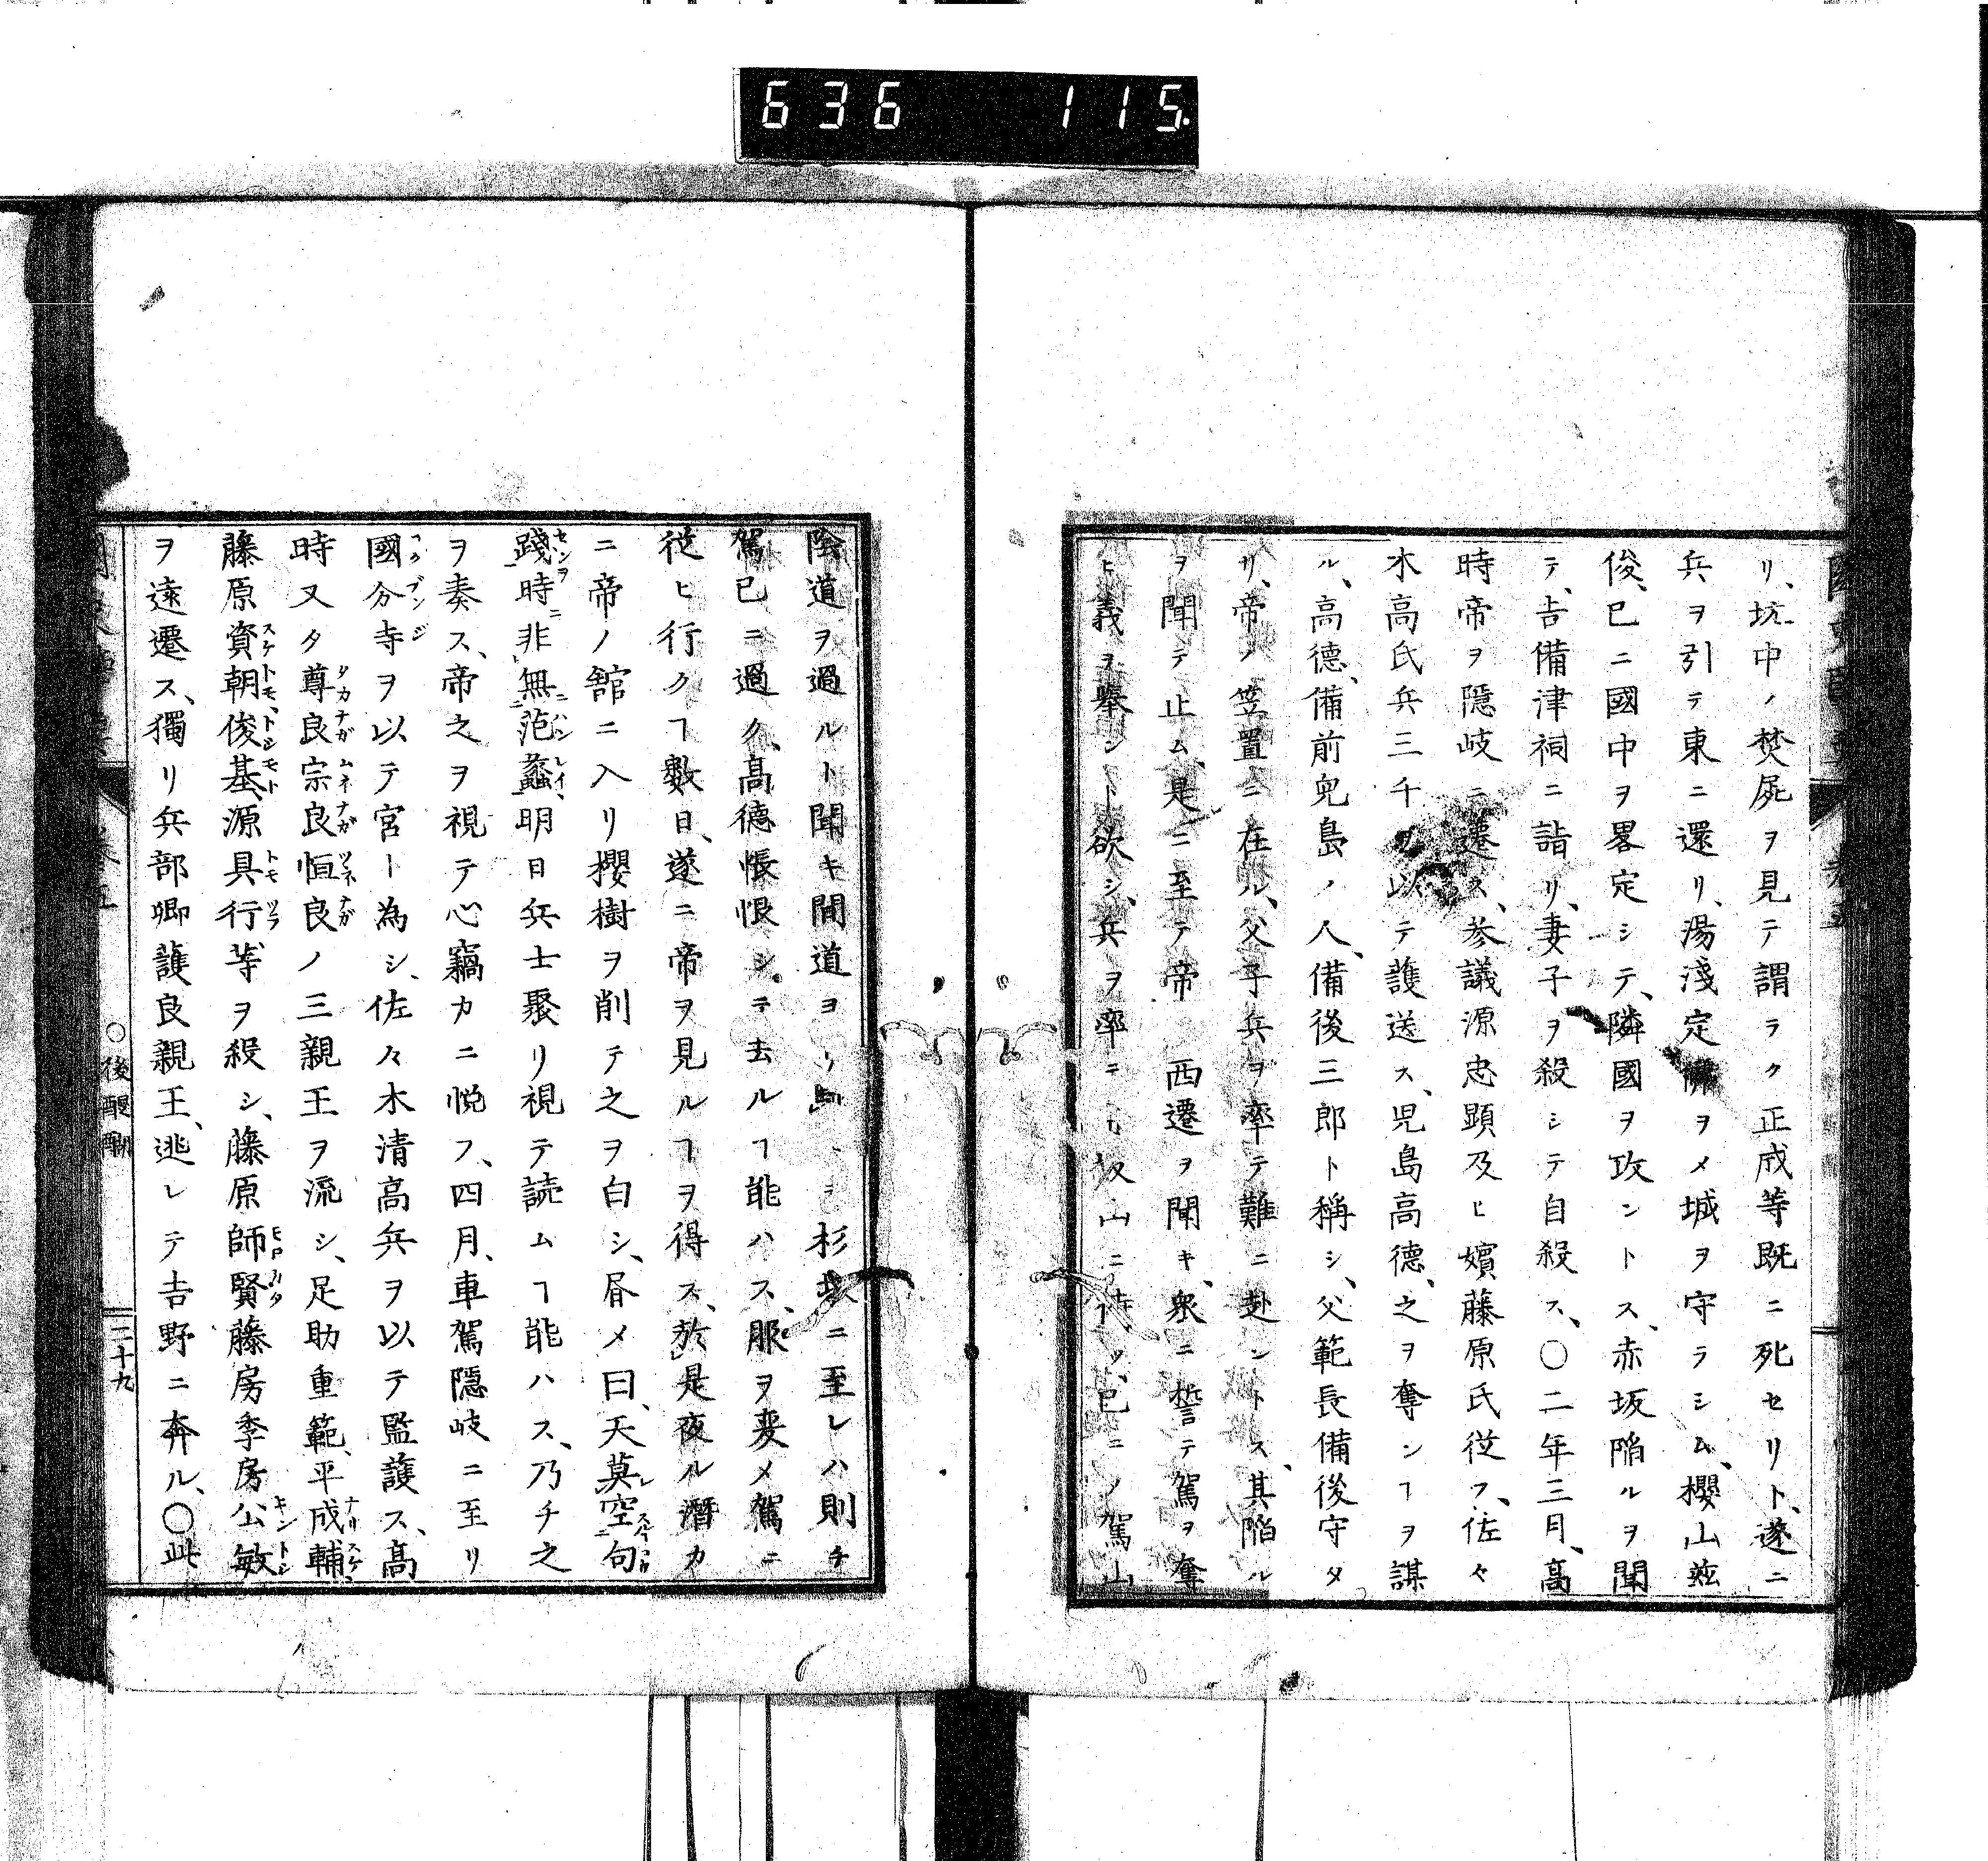 636 115
リ、坑中ノ焚屍ヲ見テ謂ラク正成等既ニ死セリト、遂ニ
兵ヲ引テ東ニ還リ、湯淺定佛ヲメ城ヲ守ラシム、櫻山玆
俊、已ニ國中ヲ畧定シテ、隣國ヲ攻ントス、赤坂陥ルヲ聞
テ、吉備津祠ニ詣リ、妻子ヲ殺シテ自殺ス、〇二年三月、高
時帝ヲ隱岐ニ遷ス、参議源忠顕及ヒ嬪藤原氏従フ、佐々
木高氏兵三千ヲ以テ護送ス、児島高徳、之ヲ奪ンヿヲ謀
ル、高徳、備前兒島ノ人、備後三郎ト稱シ、父範長備後守タ
リ、帝ノ笠置ニ在ル、父子兵ヲ率テ難ニ赴ントス、其陥ル
ヲ聞テ止ム、是ニ至テ帝西遷ヲ聞キ、衆ニ誓テ駕ヲ奪
ヒ義ヲ擧ント欲シ、兵ヲ率 山ニ待ツ、已ニ 駕山
陰道ヲ過ルト聞キ間道ヨリ 杉坂ニ至レハ則チ
駕已ニ過ク、高徳悵恨シテ去ルヿ能ハス、服ヲ変メ駕ニ
従ヒ行クヿ數日、遂ニ帝ヲ見ルヿヲ得ス、於是夜ル潜カ
ニ帝ノ舘ニ入リ櫻樹ヲ削テ之ヲ白シ、昏メ曰、天莫空句
踐時非無范蠡明日兵士聚リ視テ読ムヿ能ハス、乃チ之
ヲ奏ス、帝之ヲ視テ心竊カニ悦フ、四月、車駕隠岐ニ至リ
國分寺ヲ以テ宮ト為シ、佐々木清高兵ヲ以テ監護ス、高
時又タ尊良宗良恒良ノ三親王ヲ流シ、足助重範、平成輔、
藤原資朝、俊基、源具行等ヲ殺シ、藤原師賢藤房季房公敏
ヲ遠遷ス、獨リ兵部卿護良親王、逃レテ吉野ニ奔ル、〇此
〇後醍醐 二十九